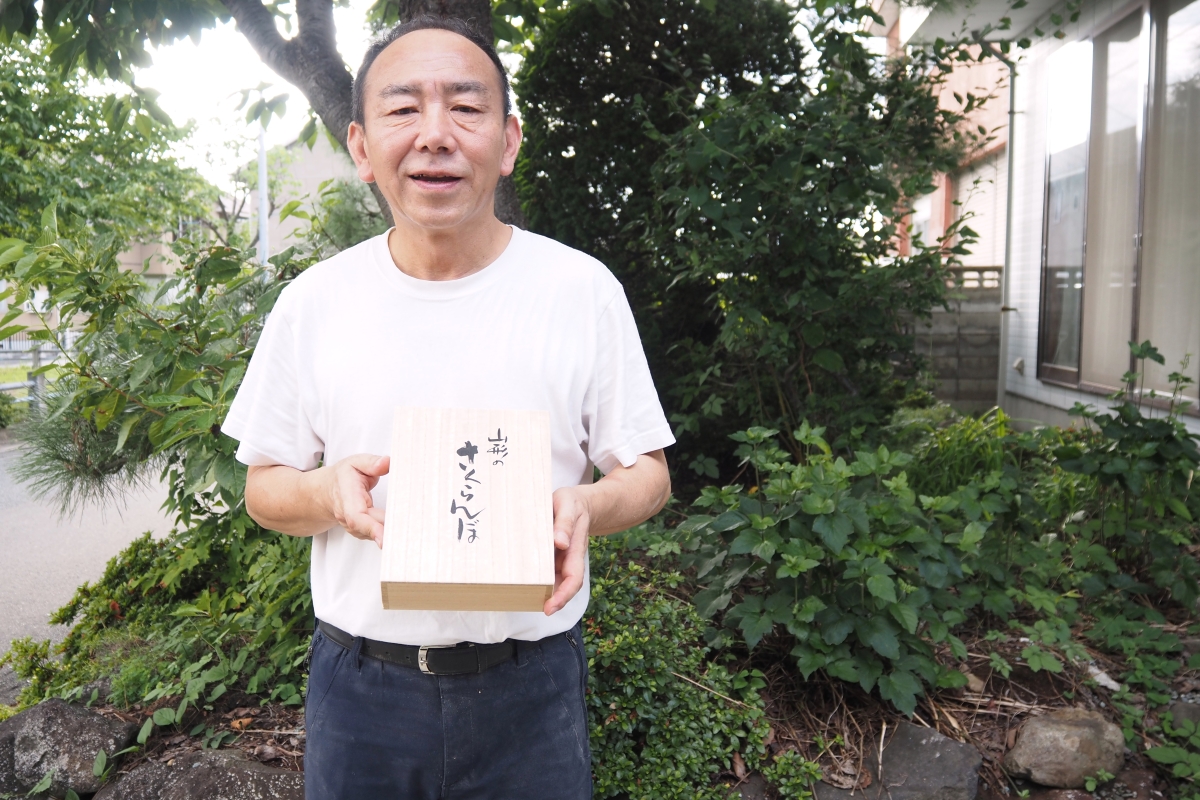 山形の
さくらんぼ